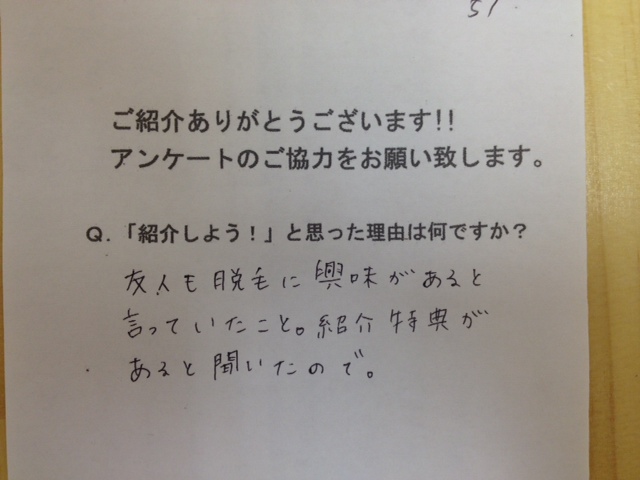 51
ご紹介ありがとうございます!!
アンケートのご協力をお願い致します。
Q.「紹介しよう！」と思った理由は何ですか？
友人も脱毛に興味があると
言っていたこと。紹介特典が
あると聞いたので。